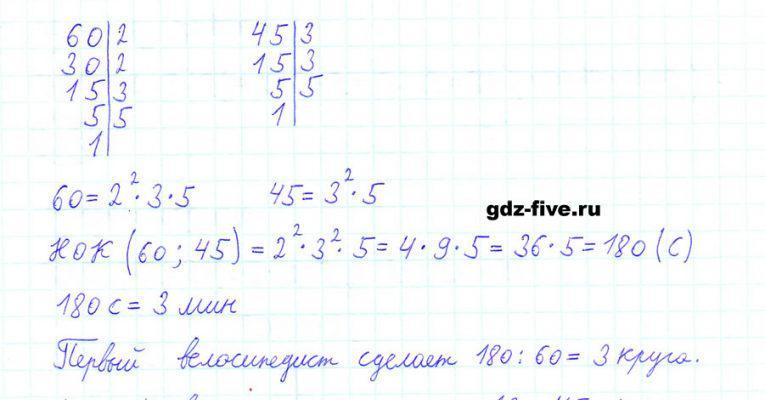 60|2 45|3
30|2 15|3
15|3 5|5
5|5 1|
1|
60=2²·3·5 45=3²·5
gdz-five.ru
НОК (60; 45) = 2²·3²·5=4·9·5=36·5=180 (с)
180 с = 3 мин
Первый велосипедист сделает 180:60= 3 круга.